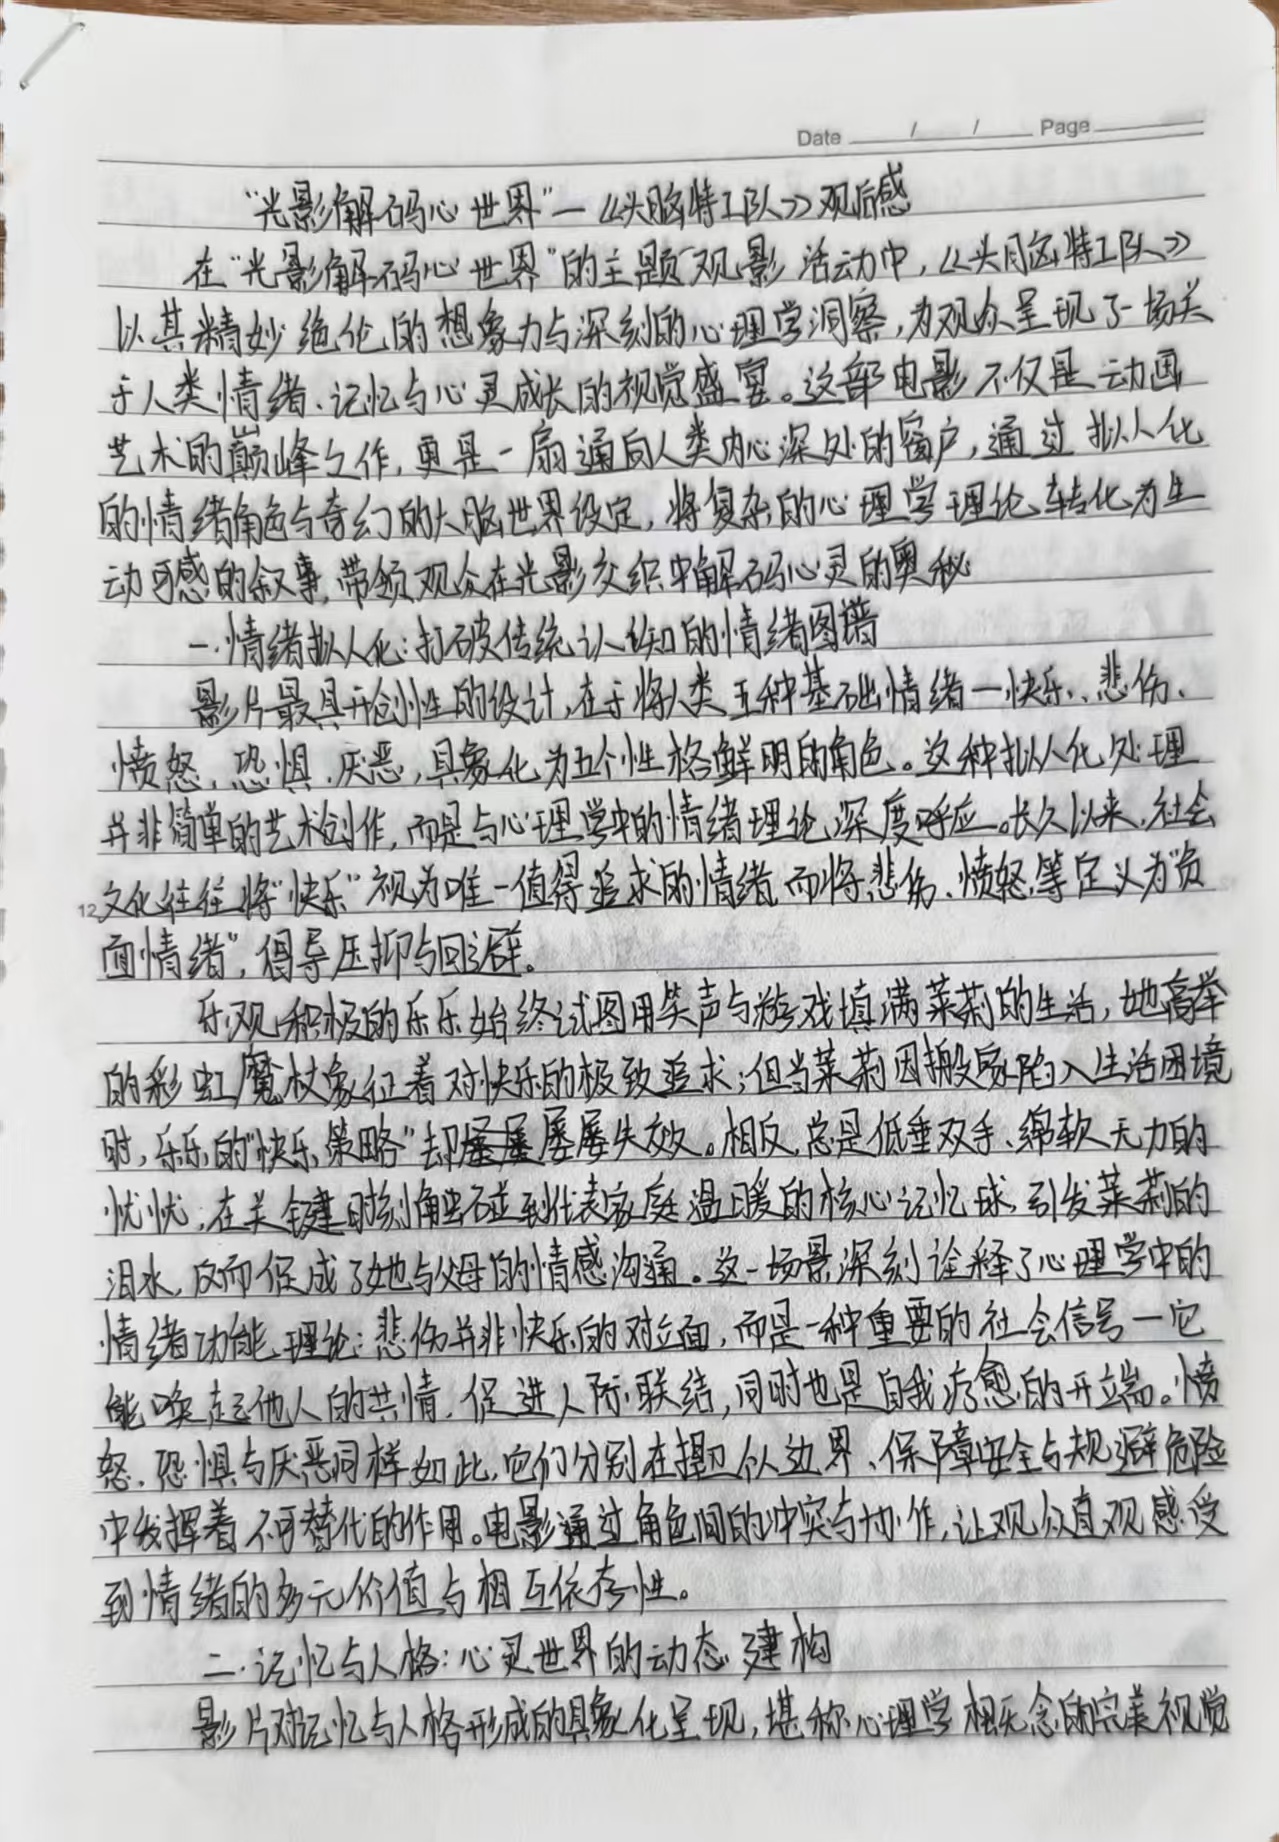 Date / / Page
"光影解码心世界"—《头脑特工队》观后感
在"光影解码心世界"的主题观影活动中,《头脑特工队》
以其精妙绝伦的想象力与深刻的心理学洞察,为观众呈现了一场关
于人类情绪、记忆与心灵成长的视觉盛宴。这部电影不仅是动画
艺术的巅峰之作,更是一扇通向人类内心深处的窗户,通过拟人化
的情绪角色与奇幻的大脑世界设定,将复杂的心理学理论转化为生
动可感的叙事,带领观众在光影交织中解码心灵的奥秘
一.情绪拟人化:打破传统认知的情绪图谱
影片最具开创性的设计,在于将人类五种基础情绪—快乐、悲伤、
愤怒、恐惧、厌恶,具象化为五个性格鲜明的角色。这种拟人化处理
并非简单的艺术创作,而是与心理学中的情绪理论深度呼应。长久以来,社会
12 文化往往将"快乐"视为唯一值得追求的情绪,而将悲伤、愤怒等定义为"负
面情绪",倡导压抑与回避。
乐观积极的乐乐始终试图用笑声与游戏填满莱莉的生活,她高举
的彩虹魔杖象征着对快乐的极致追求;但当莱莉因搬家陷入生活困境
时,乐乐的"快乐策略"却屡屡失效。相反,总是低垂双手、绵软无力的
忧忧,在关键时刻触碰到代表家庭温暖的核心记忆球,引发莱莉的
泪水,反而促成了她与父母的情感沟通。这一场景深刻诠释了心理学中的
情绪功能理论:悲伤并非快乐的对立面,而是一种重要的社会信号—它
能唤起他人的共情,促进人际联结,同时也是自我疗愈的开端。愤
怒、恐惧与厌恶同样如此,它们分别在捍卫个人边界、保障安全与规避危险
中发挥着不可替代的作用。电影通过角色间的冲突与协作,让观众直观感受
到情绪的多元价值与相互依存性。
二.记忆与人格:心灵世界的动态建构
影片对记忆与人格形成的具象化呈现,堪称心理学概念的完美视觉